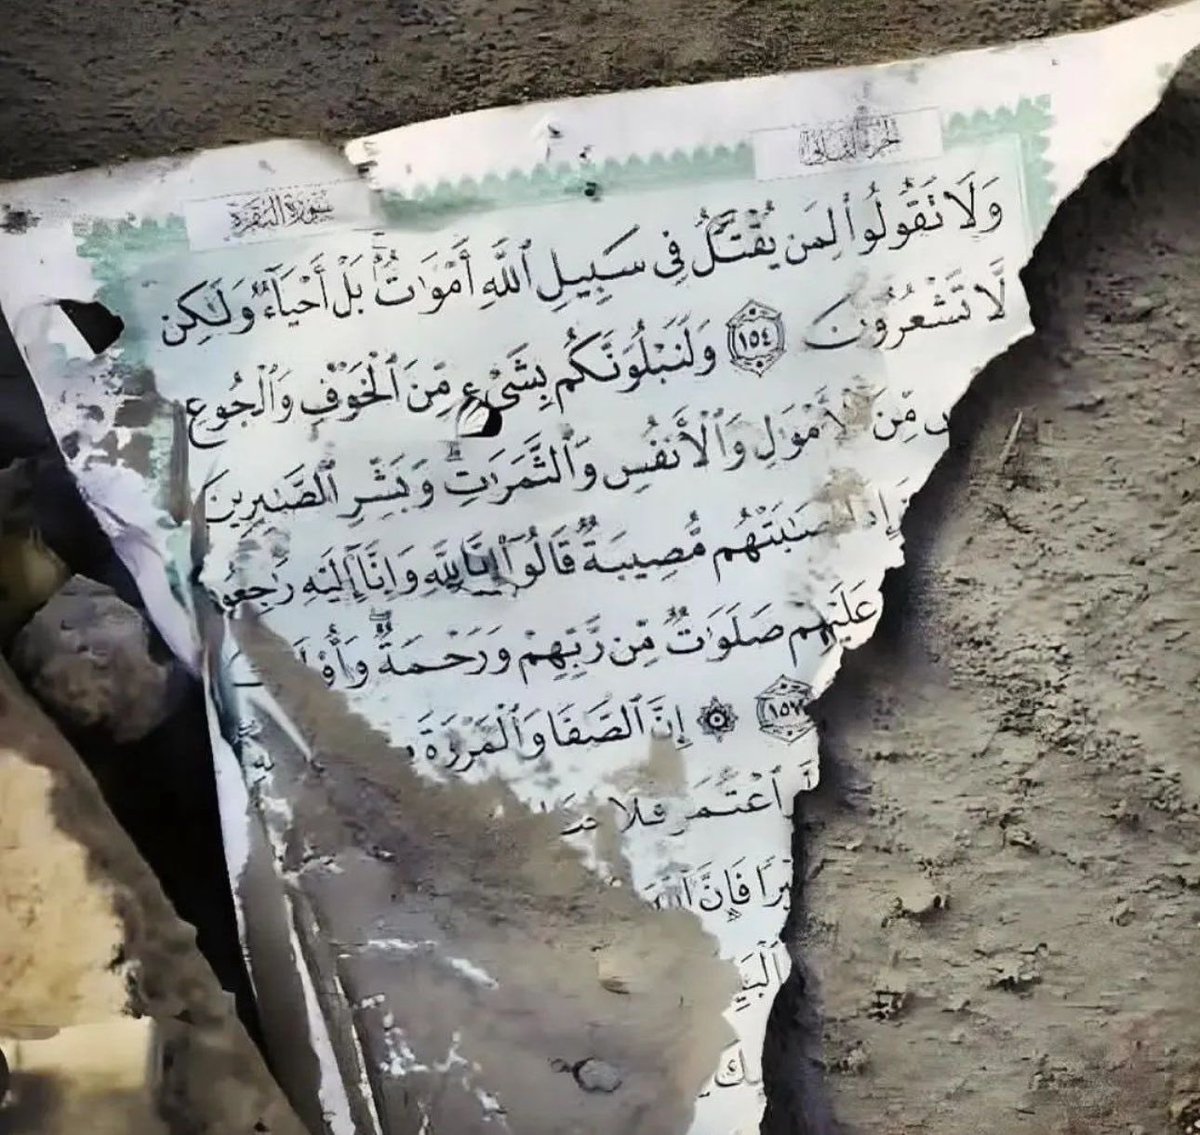 سورة البقرة
الجزء الثاني
وَلَا تَقُولُوا۟ لِمَن يُقْتَلُ فِى سَبِيلِ ٱللَّهِ أَمْوَٰتٌۢ بَلْ أَحْيَآءٌ وَلَٰكِن
لَّا تَشْعُرُونَ ١٥٤ وَلَنَبْلُوَنَّكُم بِشَىْءٍ مِّنَ ٱلْخَوْفِ وَٱلْجُوعِ
مِّنَ ٱلْأَمْوَٰلِ وَٱلْأَنفُسِ وَٱلثَّمَرَٰتِ وَبَشِّرِ ٱلصَّٰبِرِينَ
مُّصِيبَةٌ قَالُوٓا۟ إِنَّا لِلَّهِ وَإِنَّآ إِلَيْهِ
عَلَيْهِمْ صَلَوَٰتٌ مِّن رَّبِّهِمْ وَرَحْمَةٌ
١٥٧ إِنَّ ٱلصَّفَا وَٱلْمَرْوَةَ
ٱعْتَمَرَ فَلَا
فَإِنَّ ٱللَّهَ